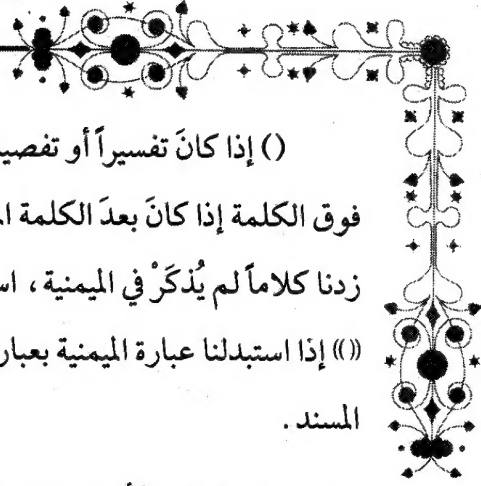 () إذا كانَ تفسيراً أو تفصي
فوق الكلمة إذا كانَ بعدَ الكلمة
زدنا كلاماً لم يُذكَرْ في الميمنية ،
(()) إذا استبدلنا عبارة الميمنية
المسند .